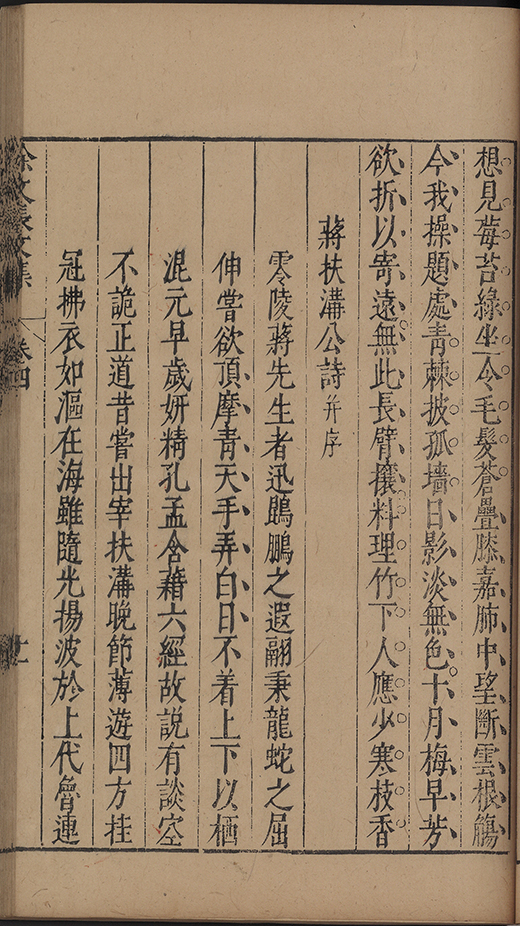 想見莓苔綠坐令毛髮蒼疊膝嘉肺中望斷雲根觴
今我操題處青棘披孤墻日影淡無色十月梅早芳
欲折以寄遠無此長臂攘料理竹下人應少寒枝香
蔣扶溝公詩并序
零陵蔣先生者迅鵾鵬之遐翮秉龍蛇之屈
伸嘗欲頂摩青天手弄白日不着上下以栖
混元早歲妍精孔孟含藉六經故説有談空
不詭正道昔嘗出宰扶溝晚節薄遊四方挂
冠拂衣如漚在海雖隨光揚波於上代魯連
徐文長文集 卷四 十一